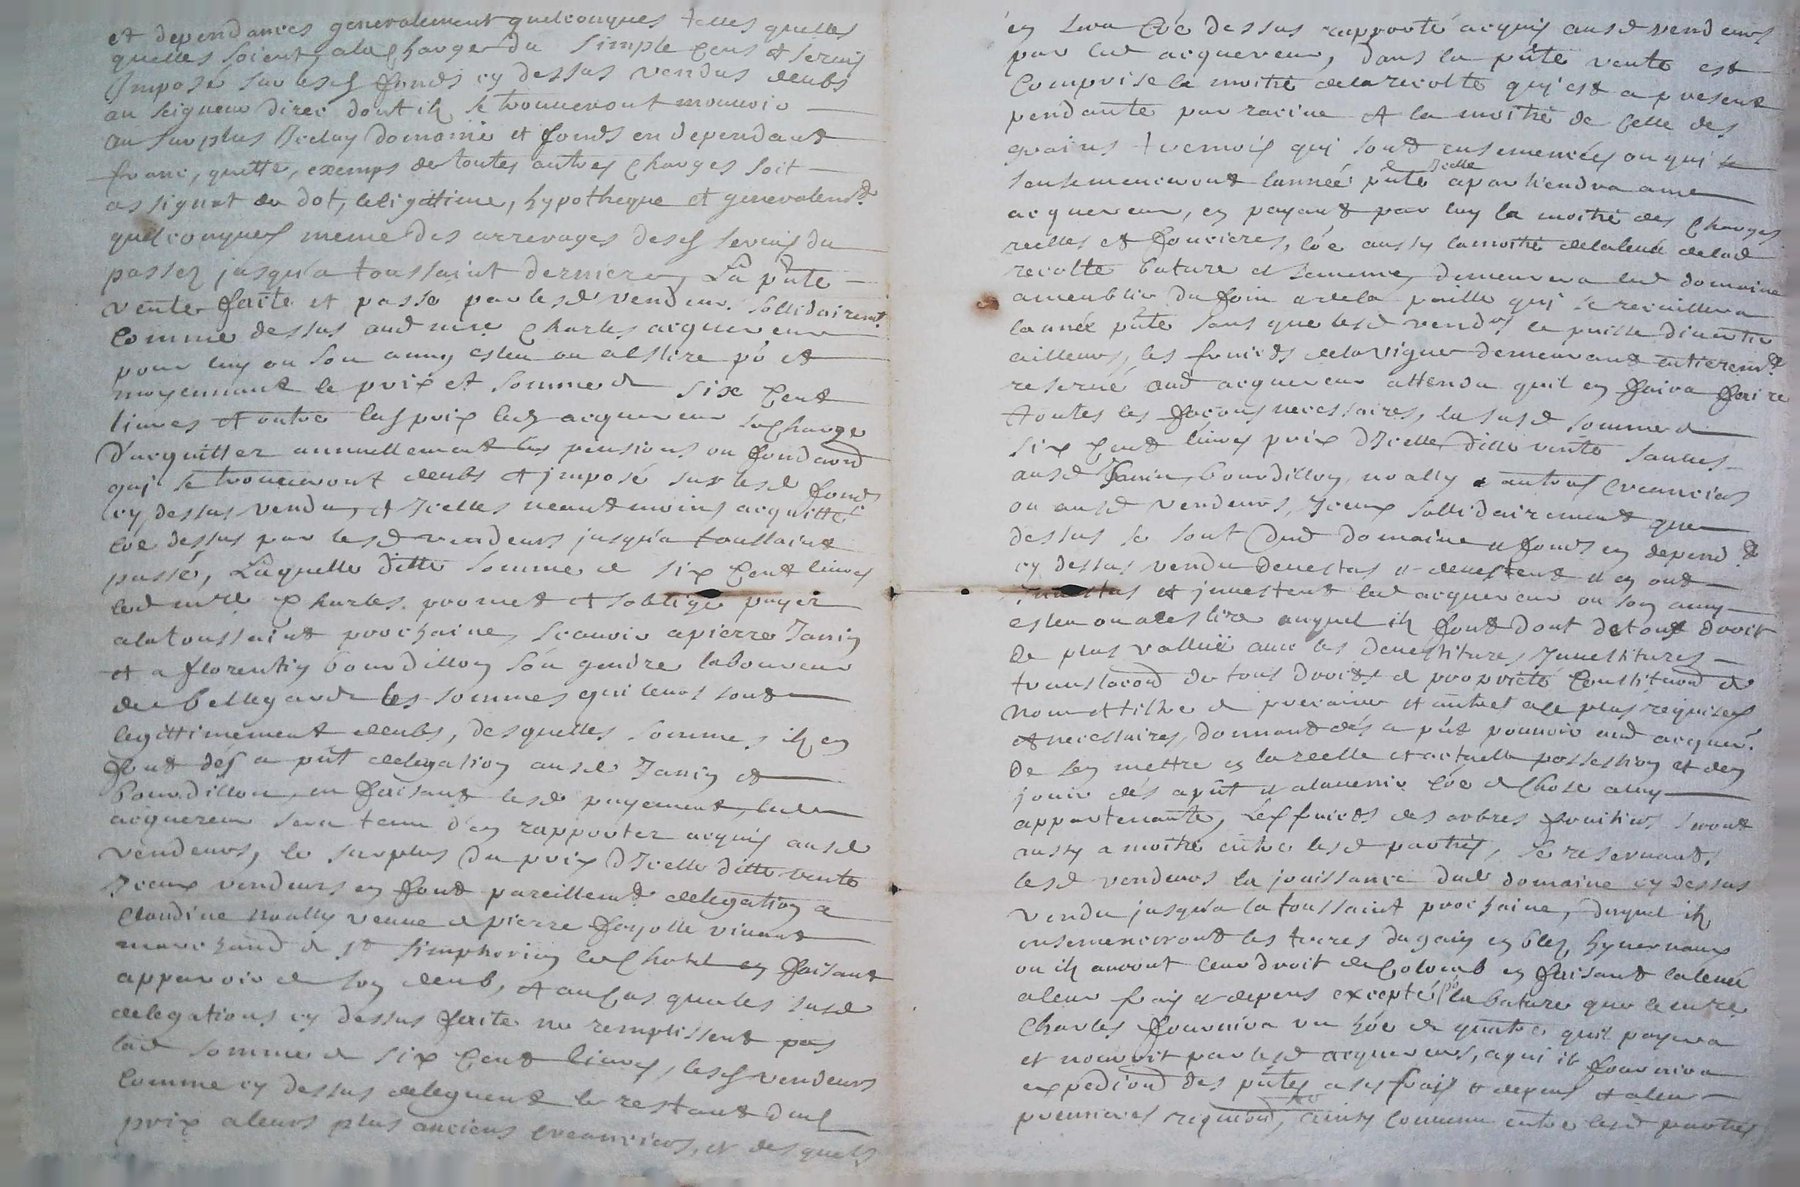 et dependances generalement quelconques telles quelles
quelles soient, a la charge du simple cens et servis
Imposé sur lesd fonds cy dessus vendus deubs
au seigneur direc dont ilz se trouveront mouvoir
au surplus Iceluy domaine et fonds en dependant
franc, quitte, exemps de toutes autres charges soit
assignat de dot, legittime, hypotheque et generalemt
quelconques meme des arrerages desd servis du
passez jusqu'a toussaint derniere, La pnte
vente faite et passé par lesd vendeurs sollidairemt
comme dessus aud mre Charles acquereur
pour luy ou son amy esleu ou a eslire po et
moyennant le prix et somme de six cent
livres et outre led prix led acquereur se charge
d'acquitter annuellement les pensions ou fondaond
qui se trouveront deubs et imposé sur lesd fonds
cy dessus vendu, et Icelles neantmoins acquitté
coe dessus par lesd vendeurs jusqu'a toussaint
passé, Laquelle ditte somme de six cent livres
led mre Charles promet et s'oblige payer
a la toussaint prochaine, scavoir a pierre Janin
et a florentin bourdillon son gendre laboureur
de bellegarde les sommes qui leurs sont
legittimement deubs, desquelles sommes ilz en
font dés a pnt delegation ausd Janin et
bourdillon, en faisant lesd payement, led
acquereur sera tenu d'en rapporter acquis ausd
vendeurs, le surplus du prix d'Icelle ditte vente
Iceux vendeurs en font pareillemt delegation a
Claudine noally veuve de pierre fayolle vivant
marchand de st simphorien le Chatel en faisant
apparoir de son deub, et au cas que les susd
delegations cy dessus faite ne remplissent pas
lad somme de six cent livres, lesd vendeurs
comme cy dessus deleguent le restant dud
prix a leurs plus anciens creanciers, et desquels
en sera coe dessus rapporté acquis ausd vendeurs
par led acquereur, dans la pnte vente est
comprise la moitié de la recolte qui est a present
pendante par racine et la moitié de celle des
grains tremois qui sont ensemencées ou qui se
sensemenceront lannée pnte & Icelle apartiendra aud
acquereur, en payant par luy la moitié des charges
reelles et foncieres, coe aussy la moitié de la levée de lad
recolte bature et semence, demeurera led domaine
ameublir du foin et de la paille qui se recuillera
lannée pnte sans que lesd vendrs en puisse divertir
ailleurs, les fruicts de la vigne demeurant entieremt
reservé aud acquereur attendu quil en faira faire
toutes les façons necessaires, la susd somme de
six cent livres prix d'Icelle ditte vente sauves
ausd Janin, bourdillon, noally & autres creanciers
ou ausd vendeurs, Iceux sollidairement que
dessus se sont dud domaine et fonds en depend
cy dessus vendu devestus et devestent et en ont
investus et investent led acquereur ou son amy
esleu ou a eslire auquel ilz font dont de tout droit
de plus vallüe avec les devestitures, Investitures
translaond de tous droits de proprieté constituond de
nom et tiltre de precaire et autres a ce plus requises
et necessaires, donnant dés a pnt pouvoir aud acquer.
de sen mettre en la reelle et actuelle possession et den
jouir dés a pnt et a lavenir coe de chose a luy
appartenante, Les fruicts des arbres fruitiers seront
aussy a moitié entre lesd parties, se reservant
lesd vendeurs la jouissance dud domaine cy dessus
vendu jusqu'a la toussaint prochaine, duquel ilz
ensemenceront les terres du gain en bled hyvernaux
ou ilz auront leur droit de Colomb en faisant la levée
a leur frais et depens excepté po la bature que le mre
Charles fournira un hoe de quatre quil payera
et nourrit par lesd acquereurs, a qui il fournira
expediond des pntes a ses frais et depens et a leur
premieres requiond, ainsy convenu entre lesd parties